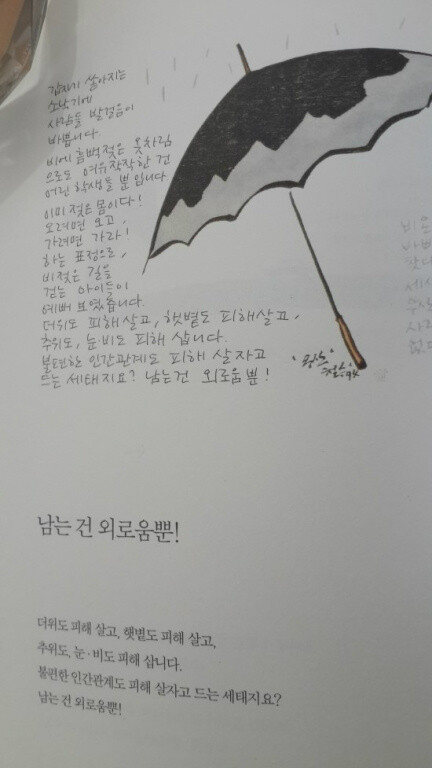 갑자기 쏟아지는
소낙기에
사람들 발걸음이
바쁩니다.
비에 흠뻑 젖은 옷차림
으로도 여유작작한 건
어린 학생들 뿐입니다.
이미 젖은 몸이다!
오려면 오고,
가려면 가라!
하는 표정으로,
비젖은 길을
걷는 아이들이
예뻐 보였습니다.
더위도 피해살고, 햇볕도 피해살고,
추위도, 눈·비도 피해 삽니다.
불편한 인간관계도 피해 살자고
드는 세태지요? 남는건 외로움뿐!
남는 건 외로움뿐!
더위도 피해 살고, 햇볕도 피해 살고,
추위도, 눈·비도 피해 삽니다.
불편한 인간관계도 피해 살자고 드는 세태지요?
남는 건 외로움뿐!